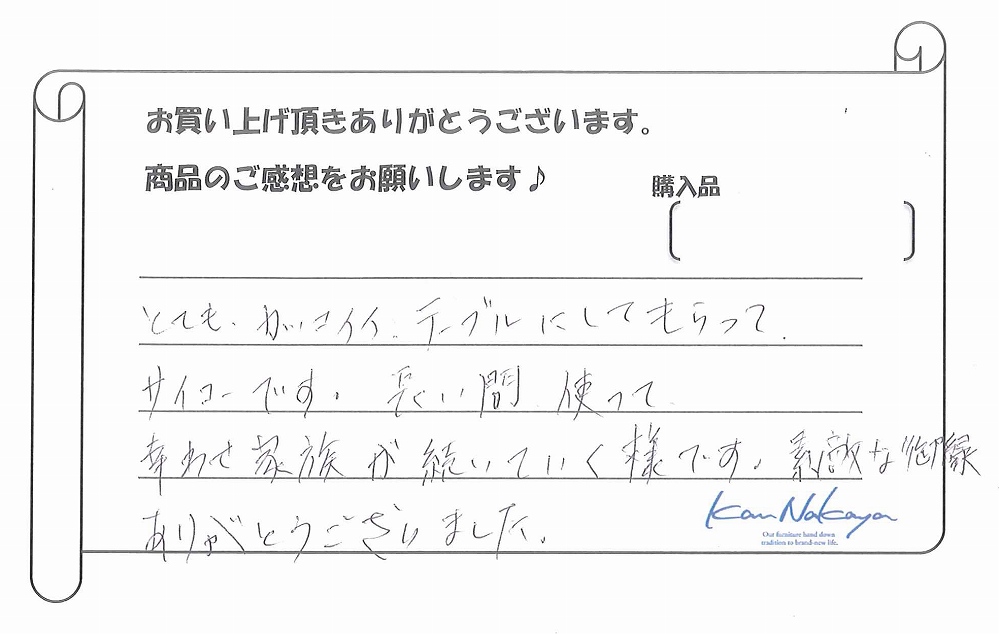 お買い上げ頂きありがとうございます。
商品のご感想をお願いします♪
購入品
とても、かっこイイ、テーブルにしてもらって
サイコーです。長い間 使って
幸わせ家族が続いていく様です。素敵な御縁
ありがとうございました。
Kan Nakaya
Our furniture hand down
tradition to brand-new life.